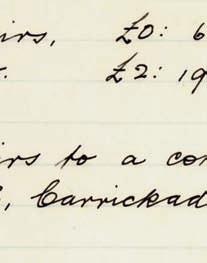 irs, £0: 6
£2: 19
irs to a con
, Carrickad